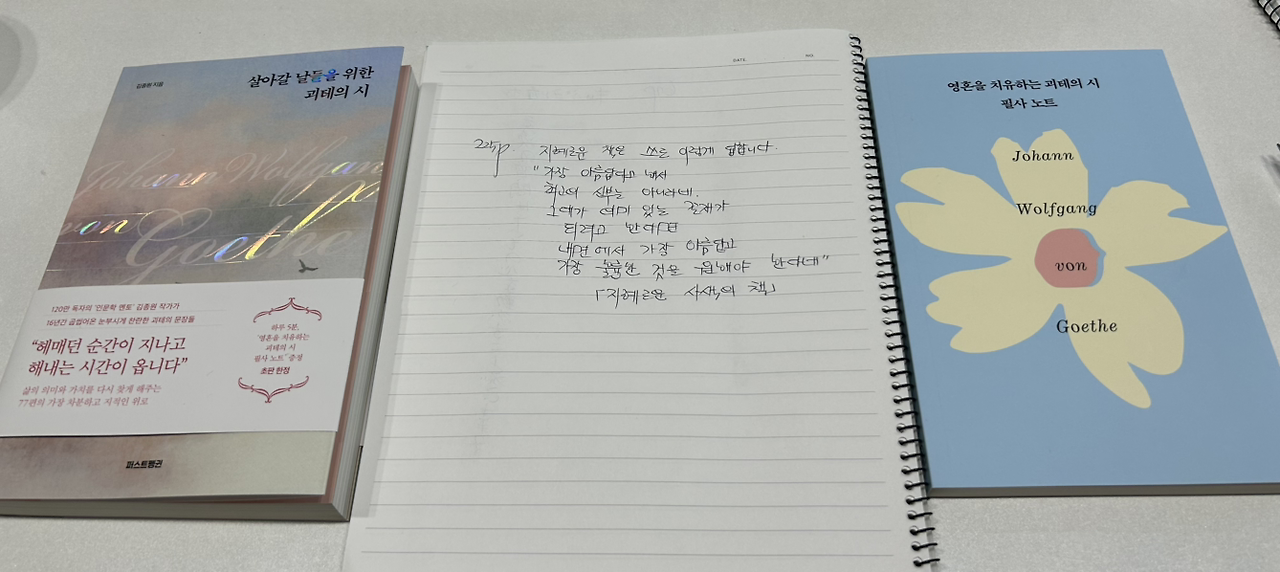 김종원 지음
살아갈 날들을 위한
괴테의 시
Johann Wolfgang
von Goethe
120만 독자의 '인문학 멘토' 김종원 작가가
16년간 곱씹어온 눈부시게 찬란한 괴테의 문장들
"헤매던 순간이 지나고
해내는 시간이 옵니다"
삶의 의미와 가치를 다시 찾게 해주는
77편의 가장 차분하고 지적인 위로
하루 5분,
'영혼을 치유하는
괴테의 시
필사 노트' 증정
초판 한정
퍼스트펭귄
DATE
NO.
225p.
지혜로운 작은 쓰로 이렇게 답합니다.
"가장 아름답다고 해서
최고의 신부는 아니라네.
그대가 의미 있는 존재가
되려고 한다면
내면에서 가장 아름답고
가장 훌륭한 것을 원해야 한다네"
「지혜로운 사색의 책」
영혼을 치유하는 괴테의 시
필사 노트
Johann
Wolfgang
von
Goethe